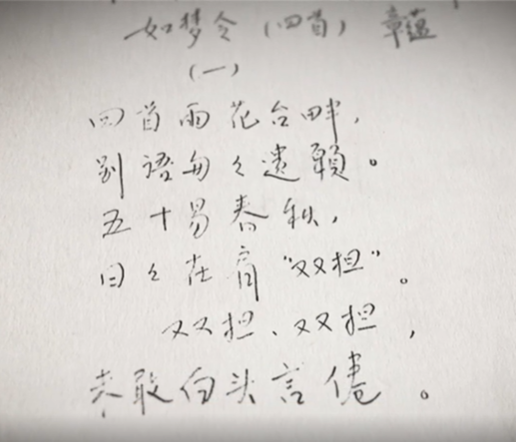 如梦令（四首） 章蕴
（一）
回首雨花台畔，
别语匆々遗願。
五十易春秋，
日々在肩“双担”。
双担、双担，
未敢白头言倦。